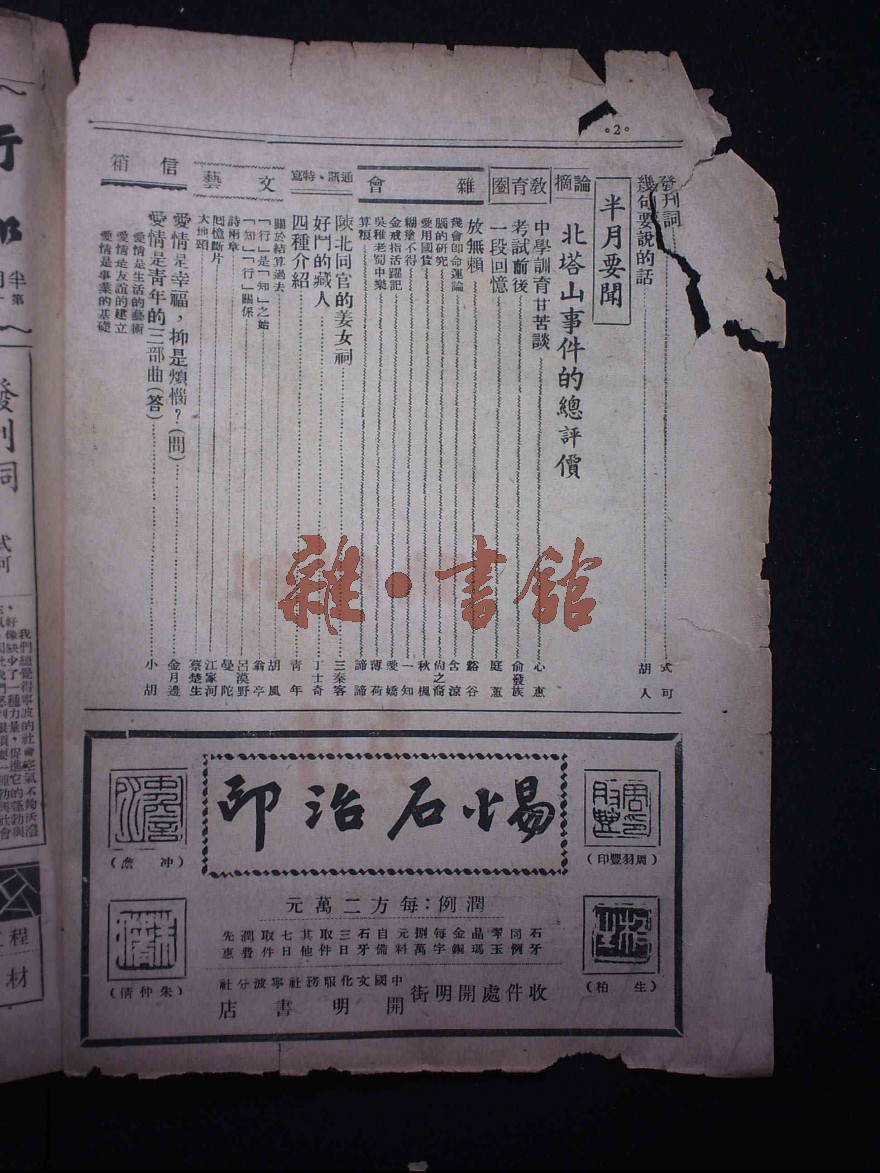 ·2·
發刊詞 式可
幾句要說的話 胡人
半月要聞
論摘
北塔山事件的總評價
教育圈
中學訓育甘苦談 心惠
考試前後 俞發族
一段回憶 庭蕙
雜會
放無賴 谿谷
幾會卽命運論 含涼
腦的研究 尙之裔
愛用國貨 秋楓
糊塗不得 一知
金戒指活躍記 愛嬌
吳稚老蜀中樂 薄荷
算糗 諦諦
通訊·特寫
陝北同官的姜女祠 三秦客
好鬥的藏人 丁士奇
四種介紹 青年
文藝
關於結算過去 胡風
「行」是「知」之始 翁亭
「知」「行」關係 呂漠野
詩兩章 曼陀
回憶斷片 江家河
大地頌 蔡楚生
信箱
愛情是幸福，抑是煩惱？(問) 金月邊
愛情是青年的三部曲(答) 小胡
愛情是生活的藝術
愛情是友誼的建立
愛情是事業的基礎
雜·書館
印治石小易
(印豐羽周)
(詹冲)
(柏生)
(倩仲朱)
元萬二方每：例潤
石牙
同例
零玉
晶瑪
金銅
每字
捌萬
元料
自備
石牙
三日
取件
其他
七日
取件
潤費
先惠
收件處開明街
社分波寧社務服化文國中
店書明開
行
半
第
發刊詞
式可
我們總覺得寧波的社會空氣不夠活潑
程
材